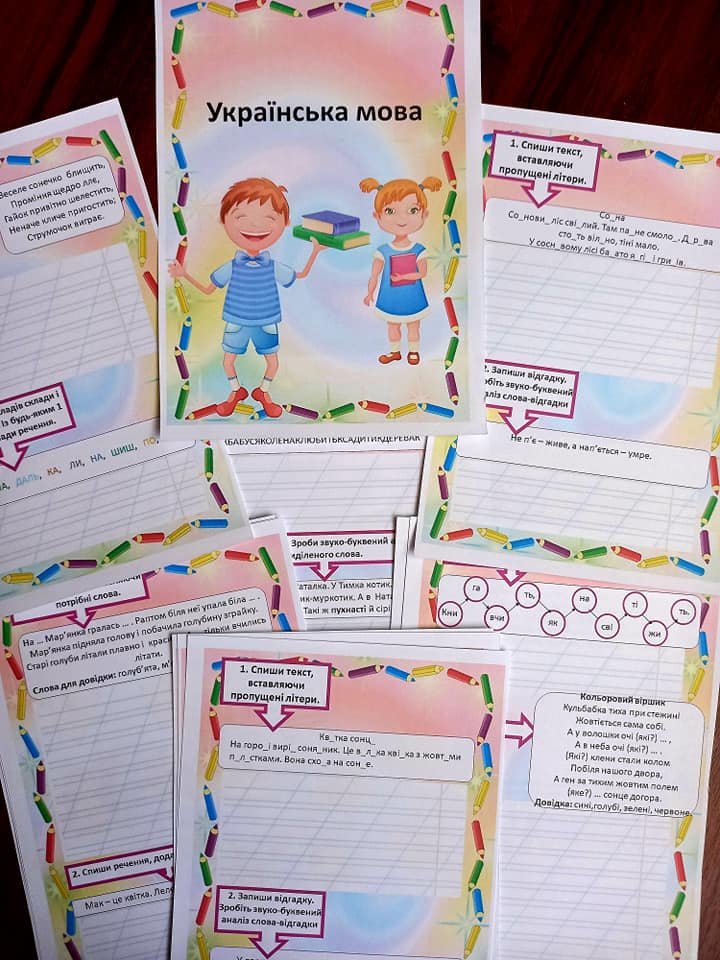 Українська мова
Веселе сонечко блищить,
Проміння щедро ллє,
Гайок привітно шелестить,
Неначе кличе пригостить;
Струмочок виграє.
складів склади і
Із будь-яким 1
речення.
ДАЛЬ, КА, ЛИ, НА, ШИШ,
1. Спиши текст,
вставляючи
пропущені літери.
Со_на
Со_нови_ ліс сві_лий. Там па_не смоло_. Д_р_ва
сто_ть віл_но, тіні мало.
У сосн_вому лісі ба_ато я_гі_ і гри_ів.
2. Запиши відгадку.
Зробіть звуко-буквений
аналіз слова-відгадки
Не п'є – живе, а нап'ється – умре.
БАБУСЯКОЛЕНАКЛЮБИТЬКСАДИТИКДЕРЕВАК
Зроби звуко-буквений
виділеного слова.
Наталка. У Тимка котик.
котик-муркотик. А в
Такі ж пухнасті й сірі
потрібні слова.
На ... Мар'янка гралась ... . Раптом біля неї упала біла ... .
Мар'янка підняла голову і побачила голубину зграйку.
Старі голуби літали плавно і тільки вчились
літати.
Слова для довідки: голуб'ята,
2. Спиши речення,
Мак – це квітка.
га ть, на ті ть.
Кни вчи як сві жи
Кольоровий віршик
Кульбабка тиха при стежині
Жовтіється сама собі.
А у волошки очі (які?) ... ,
А в неба очі (які?) ... ,
(Які?) клени стали колом
Побіля нашого двора,
А ген за тихим жовтим полем
(яке?) ... сонце догора.
Довідка: сині,голубі, зелені, червоне.
1. Спиши текст,
вставляючи
пропущені літери.
Кв_тка сонц_
На горо_і вирі_ соня_ник. Це в_л_ка кві_ка з жовт_ми
п_л_стками. Вона схо_а на сон_е.
2. Запиши відгадку.
Зробіть звуко-буквений
аналіз слова-відгадки